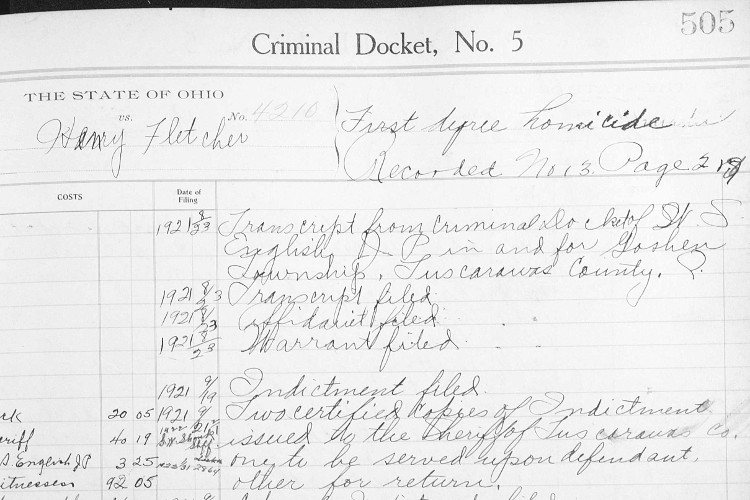 505
Criminal Docket, No. 5
THE STATE OF OHIO
vs.
No. 4210
Harry Fletcher
First degree homicide
Recorded No 13. Page 2
COSTS
Date of Filing
1921 8/23 Transcript from Criminal Docket of W. S.
English J. P. in and for Goshen
Township, Tuscarawas County, O.
1921 8/23 Transcript filed
1921 8/23 Affidavit filed
1921 8/23 Warrant filed
1921 9/9 Indictment filed.
20 05 1921 9/ Two certified copies of Indictment
eriff 40 19 issued to the Sheriff of Tuscarawas Co.
S. English JP 3 25 one to be served upon defendant,
itnesses 92 05 other for return.